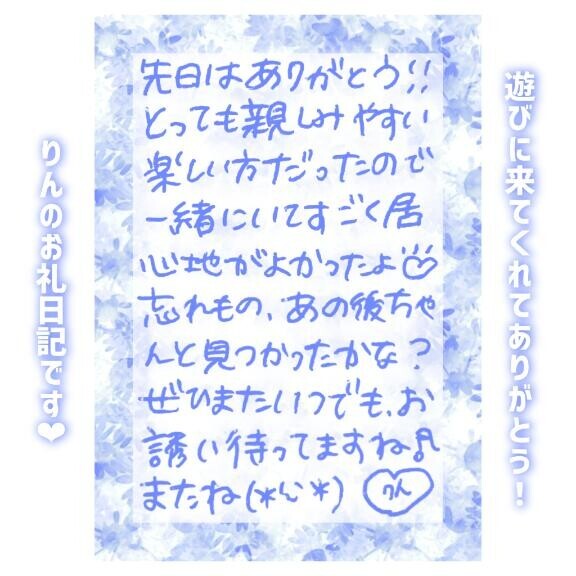 遊びに来てくれてありがとう!
先日はありがとう!!
とっても親しみやすい
楽しい方だったので
一緒にいてすごく居
心地がよかったよ♡
忘れもの、あの後ちゃ
んと見つかったかな?
ぜひまたいつでも、お
誘い待ってますね♪
またね(*^^*) りん
りんのお礼日記です❤